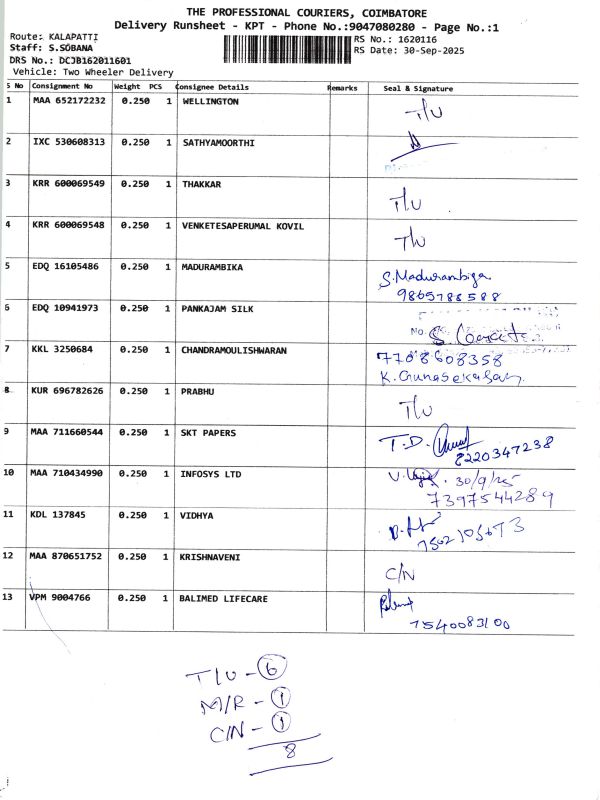 THE PROFESSIONAL COURIERS, COIMBATORE
Delivery Runsheet - KPT - Phone No.:9047080280 - Page No.:1
Route: KALAPATTI
RS No.: 1620116
Staff: S.SOBANA
RS Date: 30-Sep-2025
DRS No.: DCJB162011601
Vehicle: Two Wheeler Delivery
S No Consignment No Weight PCS Consignee Details Remarks Seal & Signature
1 MAA 652172232 0.250 1 WELLINGTON T/U
2 IXC 530608313 0.250 1 SATHYAMOORTHI
3 KRR 600069549 0.250 1 THAKKAR T/U
4 KRR 600069548 0.250 1 VENKETESAPERUMAL KOVIL T/U
5 EDQ 16105486 0.250 1 MADURAMBIKA S.Madurambiga
9865788588
6 EDQ 10941973 0.250 1 PANKAJAM SILK
7 KKL 3250684 0.250 1 CHANDRAMOULISHWARAN 7708608358
K.Gunasekaran
8 KUR 696782626 0.250 1 PRABHU T/U
9 MAA 711660544 0.250 1 SKT PAPERS T.D.
8220347238
10 MAA 710434990 0.250 1 INFOSYS LTD 30/9/25
7397544289
11 KDL 137845 0.250 1 VIDHYA
7502105673
12 MAA 870651752 0.250 1 KRISHNAVENI C/N
13 VPM 9004766 0.250 1 BALIMED LIFECARE
7540083100
T/U - 6
M/R - 1
C/N - 1
8